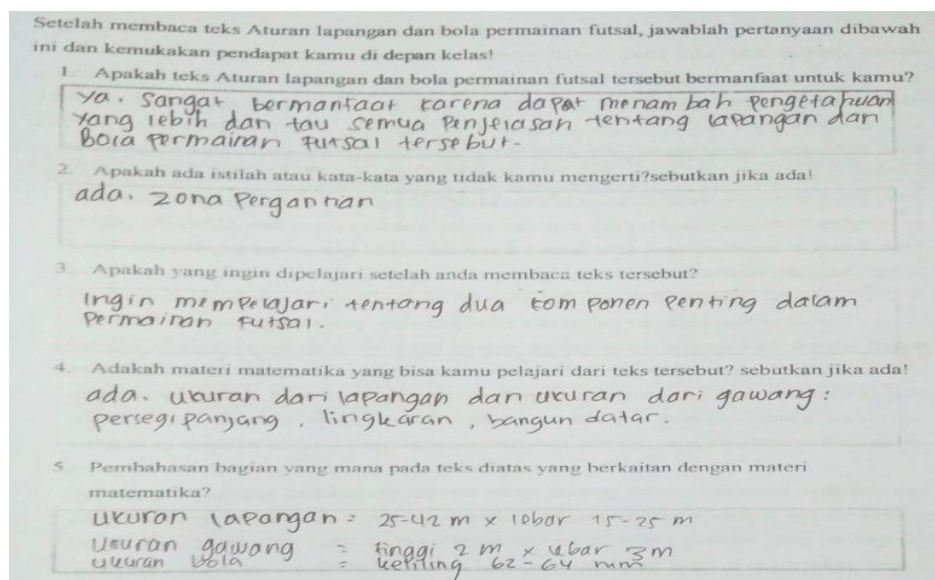 Setelah membaca teks Aturan lapangan dan bola permainan futsal, jawablah pertanyaan dibawah
ini dan kemukakan pendapat kamu di depan kelas!
1. Apakah teks Aturan lapangan dan bola permainan futsal tersebut bermanfaat untuk kamu?
ya. sangat bermanfaat karena dapat menambah pengetahuan
yang lebih dan tau semua penjelasan tentang lapangan dan
Bola permainan futsal tersebut.
2. Apakah ada istilah atau kata-kata yang tidak kamu mengerti?sebutkan jika ada!
ada. zona pergantian
3. Apakah yang ingin dipelajari setelah anda membaca teks tersebut?
Ingin mempelajari tentang dua komponen penting dalam
permainan futsal.
4. Adakah materi matematika yang bisa kamu pelajari dari teks tersebut? sebutkan jika ada!
ada. ukuran dari lapangan dan ukuran dari gawang :
persegi panjang, lingkaran, bangun datar.
5 Pembahasan bagian yang mana pada teks diatas yang berkaitan dengan materi
matematika?
ukuran lapangan = 25-42 m x lebar 15-25 m
Ukuran gawang = tinggi 2 m x lebar 3m
ukuran bola = keliling 62-64 mm